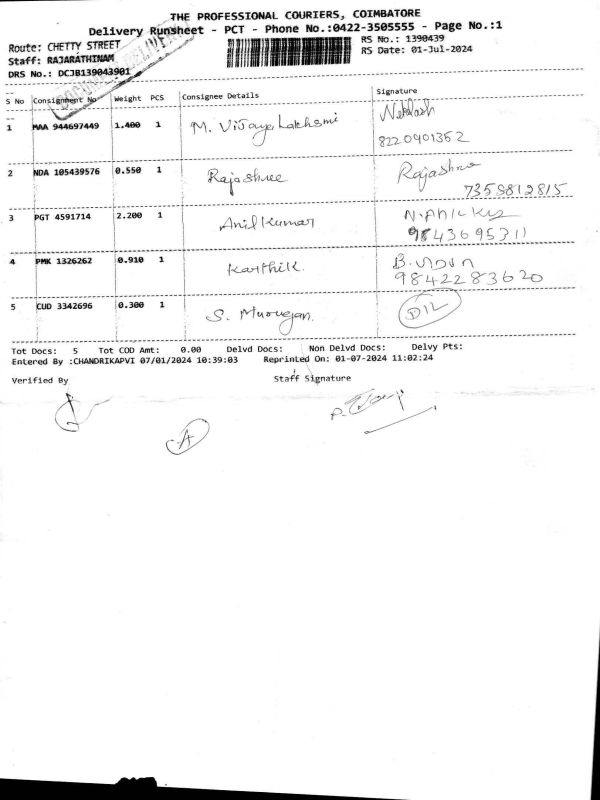 THE PROFESSIONAL COURIERS, COIMBATORE
Delivery Runsheet - PCT - Phone No.:0422-3505555 - Page No.:1
Route: CHETTY STREET
RS No.: 1390439
Staff: RAJARATHINAM
RS Date: 01-Jul-2024
DRS No.: DCJB139043901
DOCUMENT DELIVERY
S No Consignment No Weight PCS Consignee Details Signature
1 MAA 944697449 1.400 1 M. Vijaya Lakhsmi
8220401352
2 NDA 105439576 0.550 1 Rajashree Rajashree
7358812815
3 PGT 4591714 2.200 1 Anil Kumar
9843695311
4 PMK 1326262 0.910 1 Karthik.
9842283620
5 CUD 3342696 0.300 1 S. Murugan.
Tot Docs: 5 Tot COD Amt: 0.00 Delvd Docs: Non Delvd Docs: Delvy Pts:
Entered By :CHANDRIKAPVI 07/01/2024 10:39:03 Reprinted On: 01-07-2024 11:02:24
Verified By Staff Signature
A